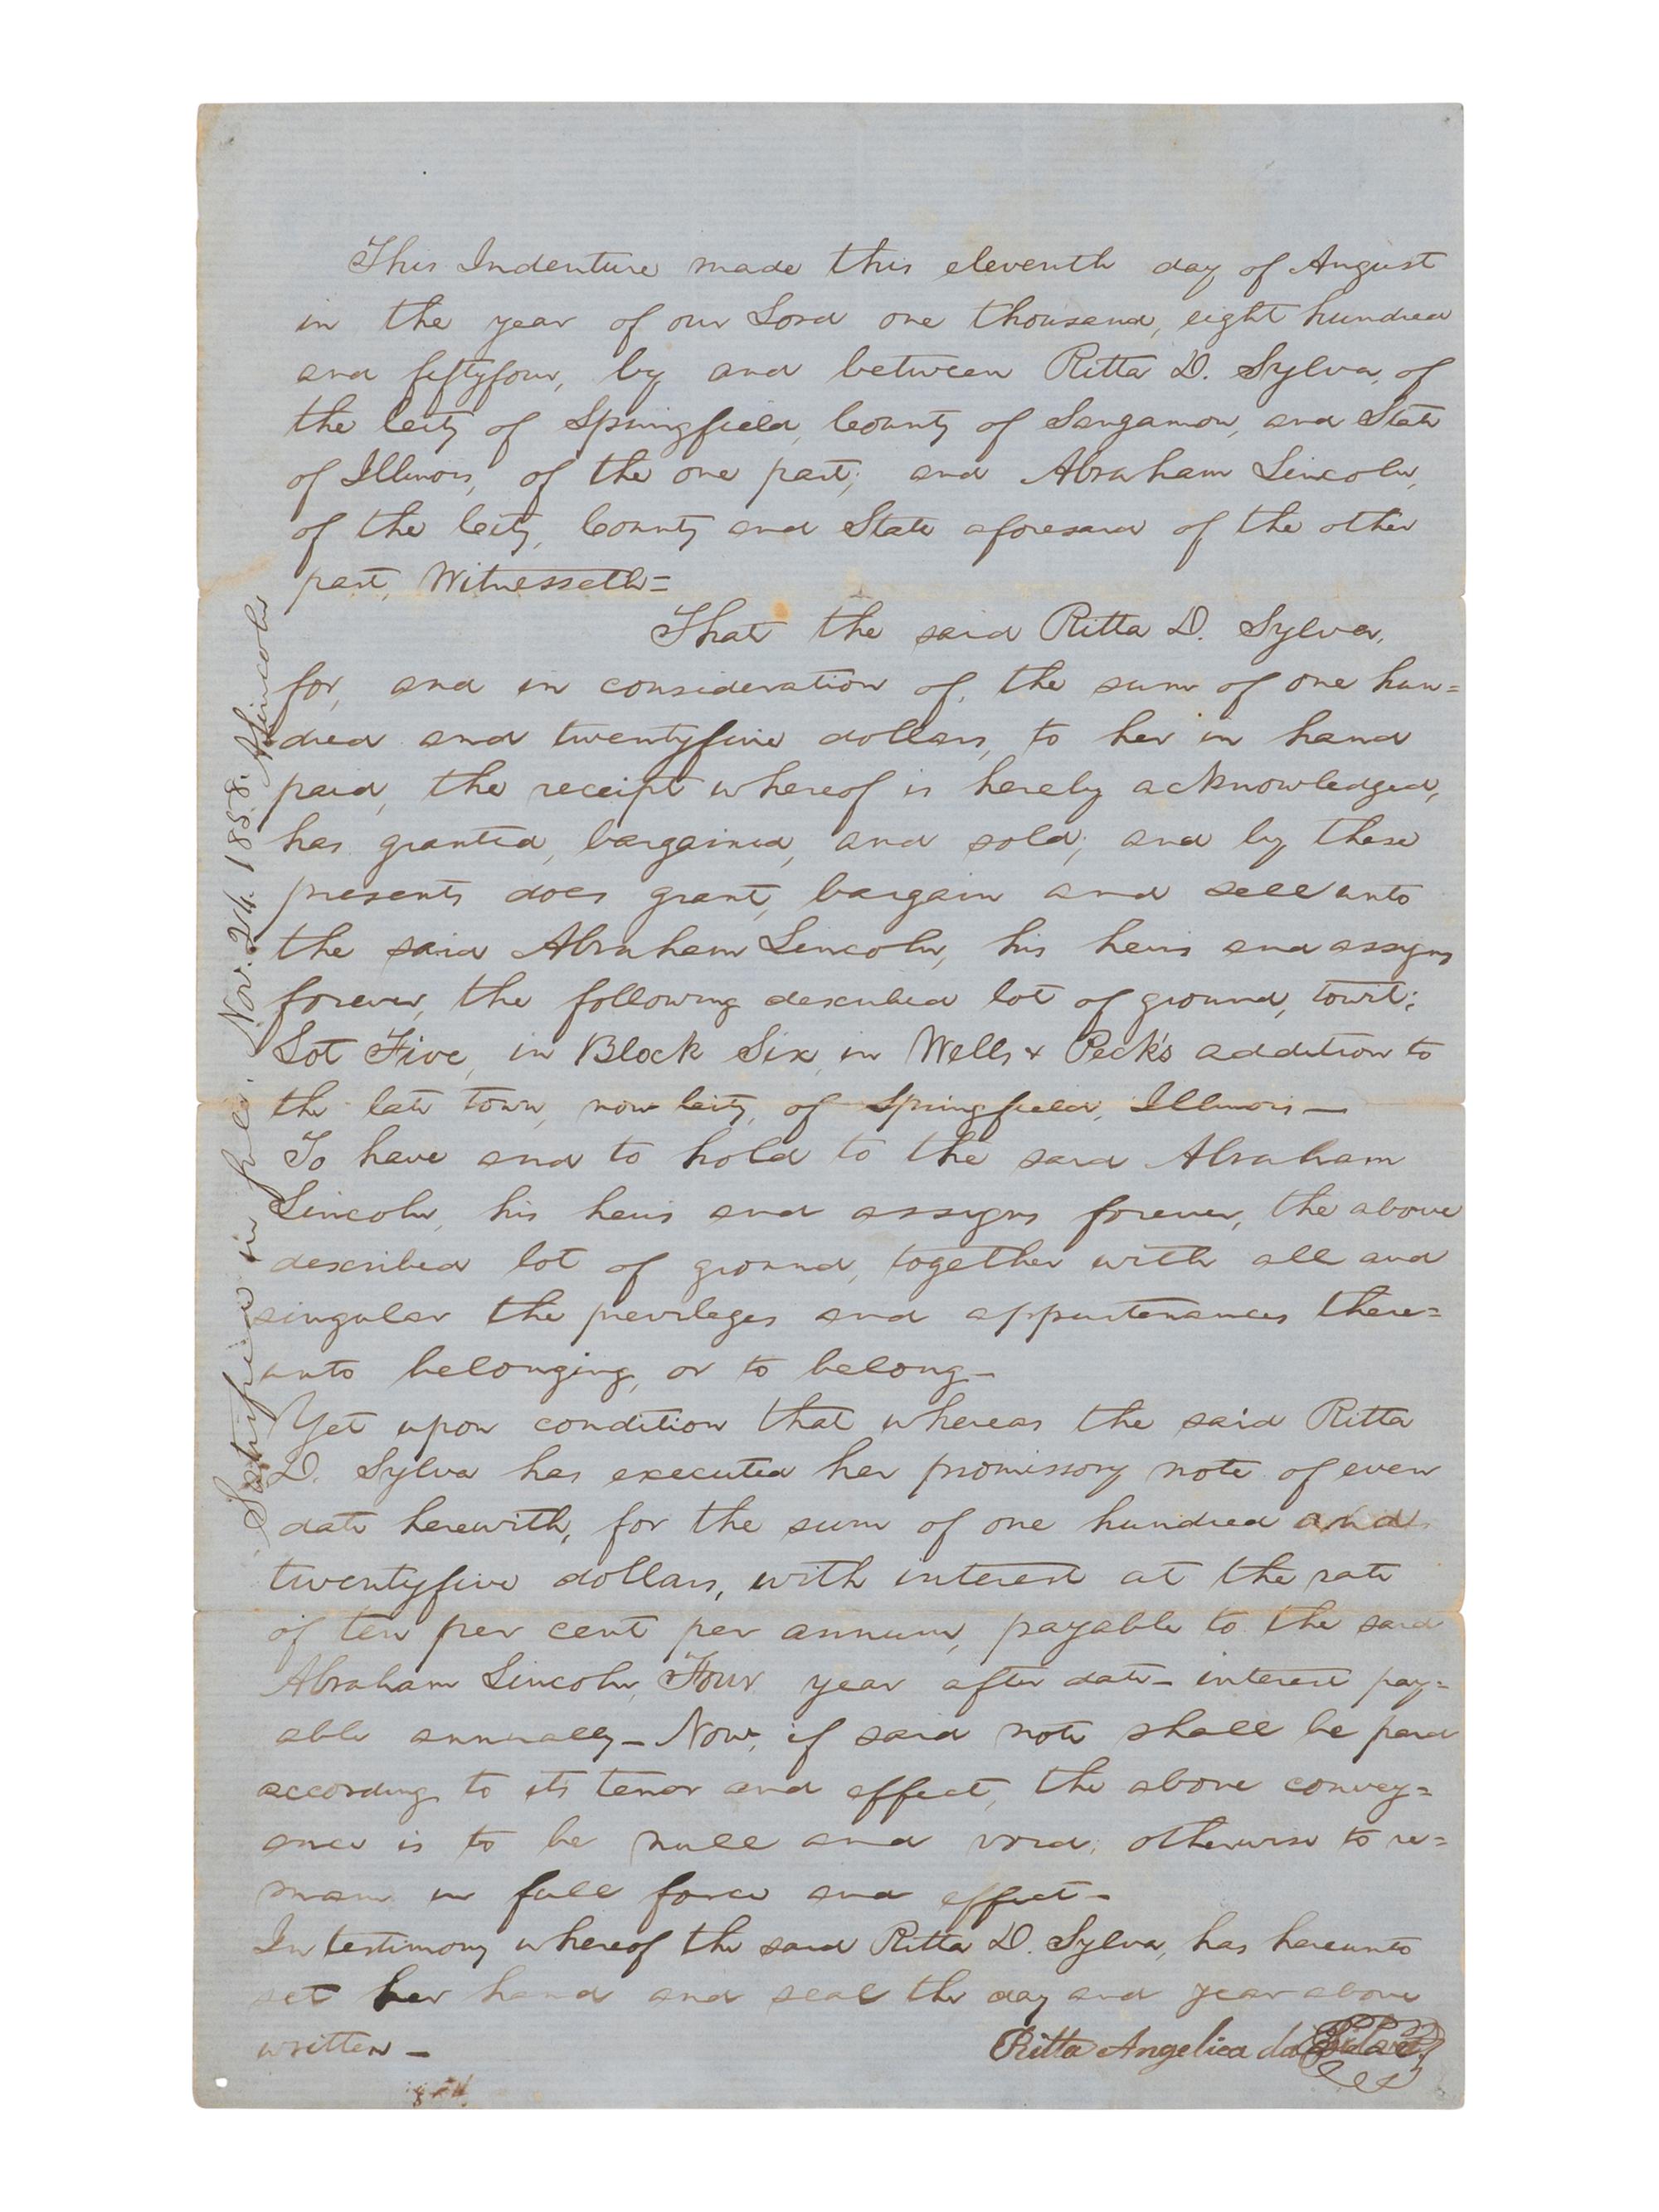 This Indenture made this eleventh day of August
in the year of our Lord one thousand, eight hundred
and fiftyfour, by and between Ritta D. Sylva, of
the City of Springfield, County of Sangamon, and State
of Illinois, of the one part; and Abraham Lincoln,
of the City, County and State aforesaid of the other
part, Witnesseth=
That the said Ritta D. Sylva,
for, and in consideration of, the sum of one hun=
dred and twentyfive dollars, to her in hand
paid, the receipt whereof is hereby acknowledged,
has granted, bargained, and sold; and by these
presents does grant, bargain and sell unto
the said Abraham Lincoln, his heirs and assigns
forever, the following described lot of ground, towit:
Lot Five, in Block Six, in Wells & Peck's addition to
the late town, now City, of Springfield, Illinois—
To have and to hold to the said Abraham
Lincoln, his heirs and assigns forever, the above
described lot of ground, together with all and
singular the previleges and appurtenances there=
unto belonging, or to belong—
Yet upon condition that whereas the said Ritta
D. Sylva has executed her promissory note of even
date herewith, for the sum of one hundred and
twentyfive dollars, with interest at the rate
of ten per cent per annum, payable to the said
Abraham Lincoln, Four year after date— interest pay=
able annually— Now, if said note shall be paid
according to its tenor and effect, the above convey=
ance is to be null and void; otherwise to re=
main in full force and effect—
In testimony whereof the said Ritta D. Sylva, has hereunto
set her hand and seal the day and year above
written—
Ritta Angelica da
Satisfied in full. Nov. 24. 1858. A. Lincoln